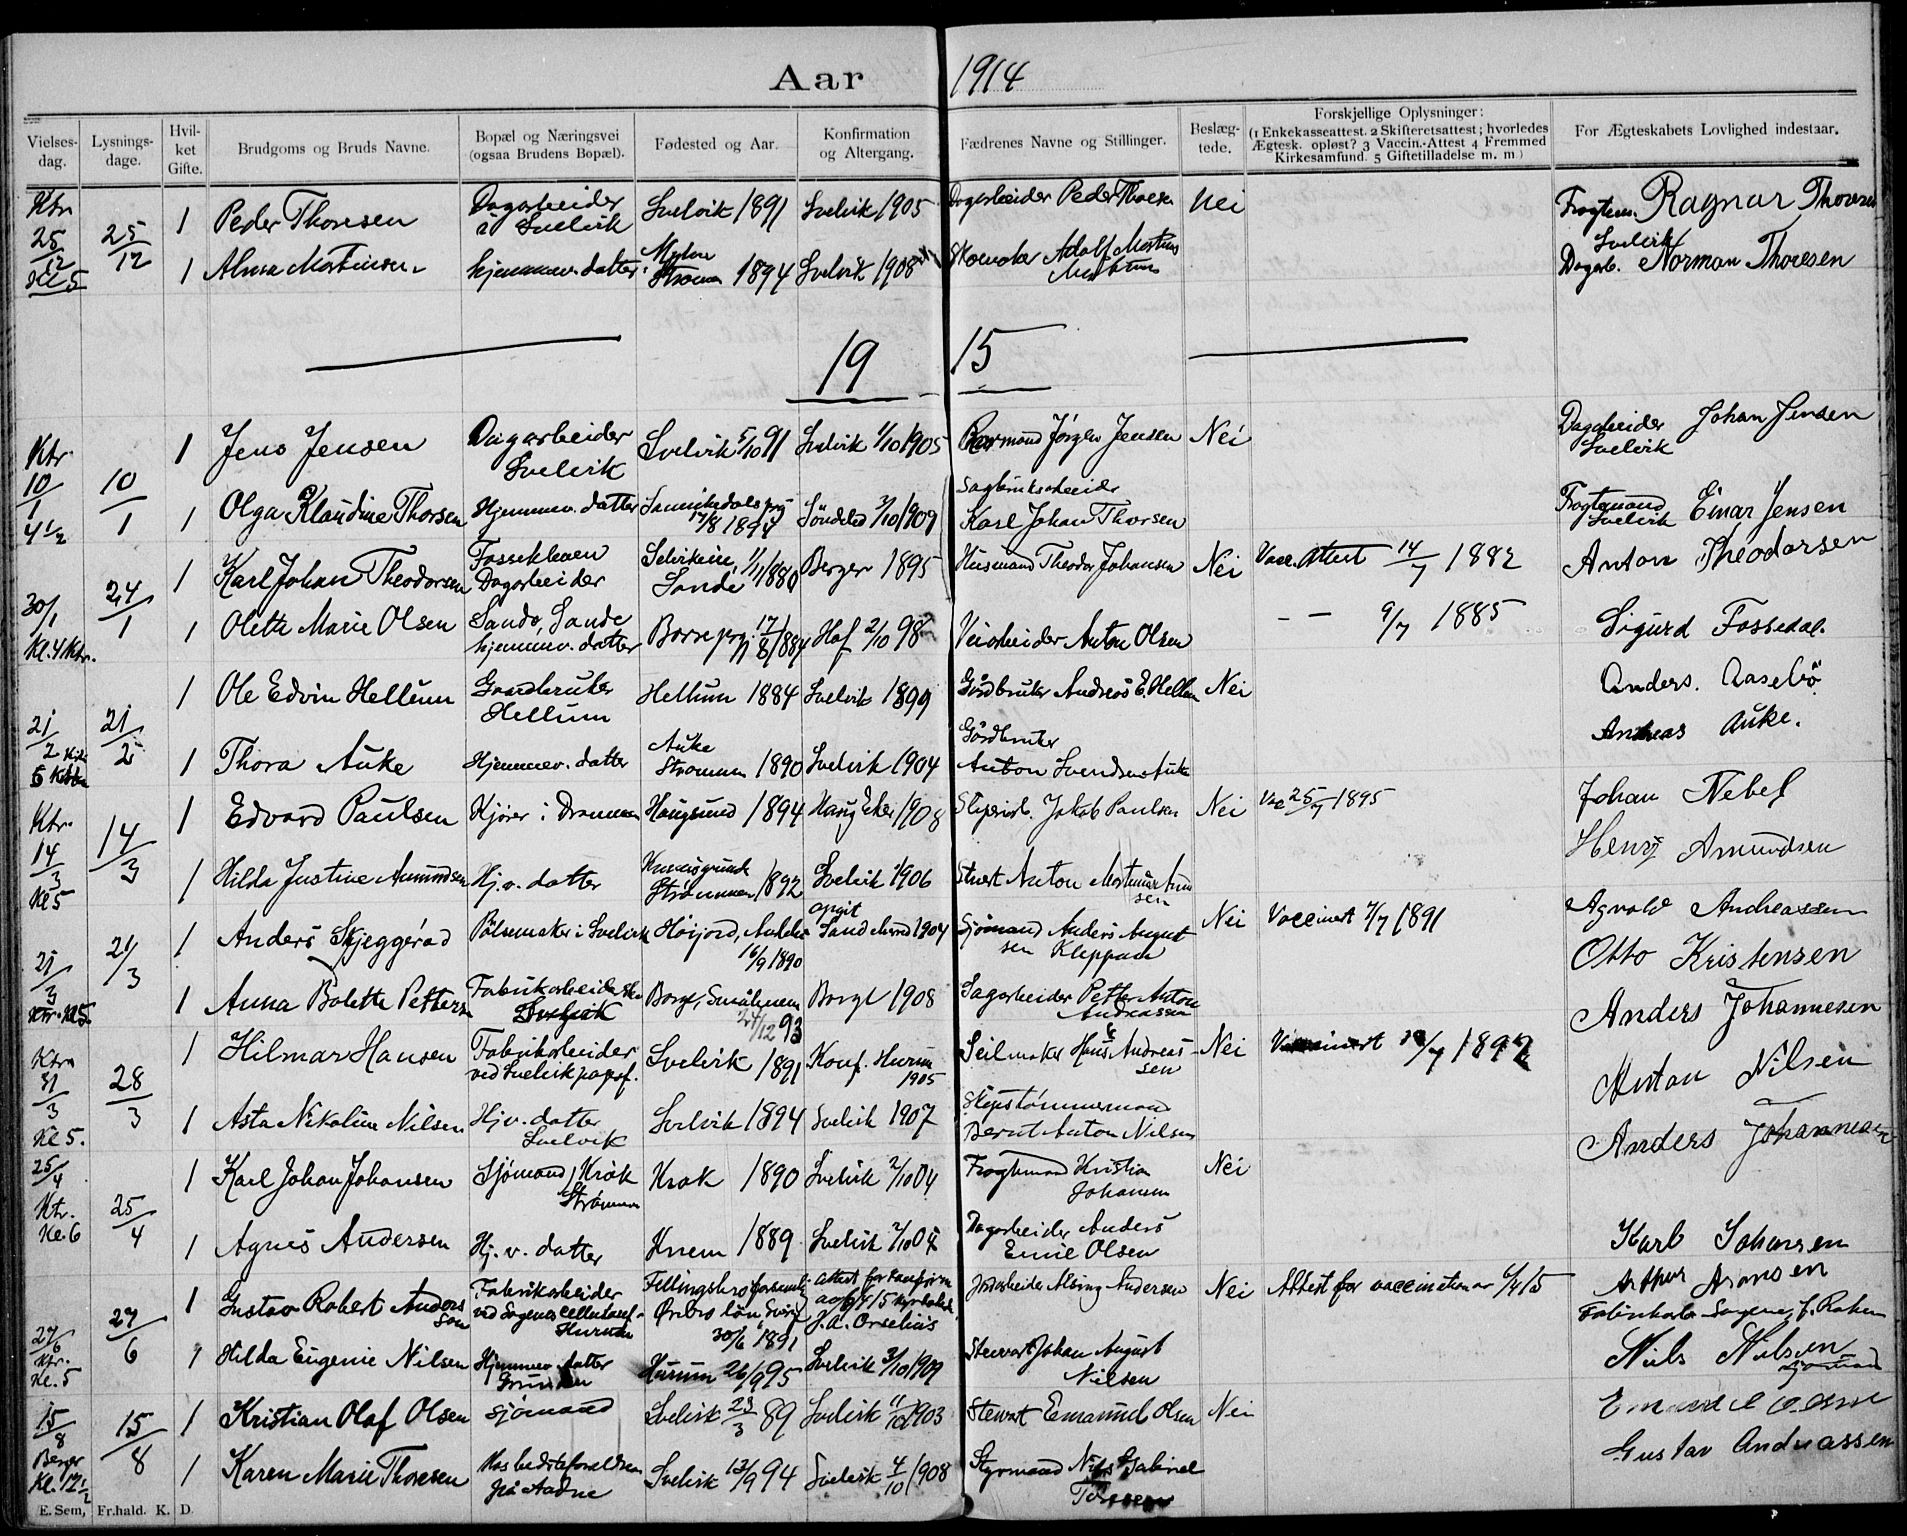 Aar 1914
Vielses-dag.
Lysnings-dage.
Hvil-ket Gifte.
Brudgoms og Bruds Navne.
Bopæl og Næringsvei (ogsaa Brudens Bopæl).
Fødested og Aar.
Konfirmation og Altergang.
Fædrenes Navne og Stillinger.
Beslæg-tede.
Forskjellige Oplysninger:
(1 Enkekasseattest. 2 Skifteretsattest; hvorledes
Ægtesk. opløst? 3 Vaccin.-Attest 4 Fremmed
Kirkesamfund. 5 Giftetilladelse m. m)
For Ægteskabets Lovlighed indestaar.
Ktr 25/12 Kl 5
25/12
1 Peder Thoresen Dagarbeider i Svelvik Svelvik 1891 Svelvik 1905 Dagarbeider Peder Thoresen Nei Ragnar Thoresen
Svelvik
1 Alma Mortinsen hjemmev. datter Strømm 1894 Svelvik 1908 Adolf Mortins Dagarb. Norman Thoresen
1915
Ktr. 10/1 4 1/2
10/1
1 Jens Jensen Dagarbeider Svelvik Svelvik 5/10 91 Svelvik 1/10 1905 Jørgen Jensen Nei Dagarbeider Svelvik Johan Jensen
1 Olga Klaudine Thorsen Hjemmev. datter Sannikedals prg 17/8 1894 Søndeled 3/10 1909 Sagbruksarbeider Karl Johan Thorsen Svelvik Einar Jensen
30/1 Kl. 4 Ktr.
24/1
1 Karl Johan Theodorsen Dagarbeider Sande 1/1 1880 Berger 1895 Husmand Theodor Johansen Nei Vacc. Attest 14/7 1882 Anton Theodorsen
1 Olette Marie Olsen Sando, Sande hjemmev. datter Borre prg. 17/8 1884 Hof 2/10 98 Veiarbeider Anton Olsen - - 9/7 1885 Sigurd Fossedal.
21/2
21/2
1 Ole Edvin Hellum Gaardbruker Hellum Hellum 1884 Svelvik 1899 Gårdbruker Andreas E. Hellum Nei Anders. Aasebö
1 Thora Auke Hjemmev. datter Auke Strømmen 1890 Svelvik 1904 Gårdbruker Anton Svendsen Auke Andreas Auke.
Ktr. 14/3 Kl 5
14/3
1 Edvard Paulsen Kjører i Drammen Haugsund 1894 Haug Eker 1908 Jakob Paulsen Nei Vac 25/7 1895 Johan Nebel
1 Hilda Justine Amundsen Hj. v. datter Strømmen 1892 Svelvik 1906 Stuert Anton Mortinius Amundsen Henry Amundsen
21/3 Ktr. Kl 5.
21/3
1 Anders Skjeggerød Pølsemaker i Svelvik 16/9 1890 opgit 1904 Sjømand Anders August Nei Vaccinert 7/7 1891 Agvald Andreassen
1 Anna Bolette Petters Fabrikarbeiderske Svelvik Borge, Smålenene 24/12 93 Borge 1908 Sagarbeider Petter Anton Andreassen Otto Kristensen
Ktr 31/3 Kl 5.
28/3
1 Hilmar Hansen Fabrikarbeider ved Svelvik papirf. Svelvik 1891 Konf. Hurum 1905 Seilmaker Hans Andreassen Nei Anders Johannesen
1 Asta Nikoline Nilsen Hj v. datter Svelvik Svelvik 1894 Svelvik 1907 Skipstømmermand Bernt Anton Nilsen Anton Nilsen
Anders Johannesen
25/4 Ktr. Kl. 6
25/4
1 Karl Johan Johansen Sjømand, Krok Strømm Krok 1890 Svelvik 2/10 04 Fragtemand Kristian Johansen Nei
1 Agnes Andersen Hj. v. datter Knem 1889 Svelvik 2/10 04 Dagarbeider Anders Emil Olsen Karl Johansen
27/6 Ktr. Kl. 5
27/6
1 Gustav Robert Andersson Fabrikarbeider ved Sagenes cellulosef. Hurum Örebro län, Sverige 30/6 1891 J. A. Orselius Jordarbeider Alsing Andersen Nei Attest for vaccination av 6/4 15 Arthur Aronsen
1 Hilda Eugenie Nilsen Hjemmev. datter Hurum 26/9 95 Svelvik 3/10 1909 Stewart Johan August Nilsen Niels Nilsen
sjømand
15/8 Berger Kl. 12 1/2
15/8
1 Kristian Olaf Olsen sjømand Svelvik 23/3 89 Svelvik 11/10 1903 Stewart Emanuel Olsen Nei
1 Karen Marie Thoresen Hos bedsteforældrene på Aadne Svelvik 13/9 94 Svelvik 4/10 1908 Styrmand Nils Gabriel Gustav Andreassen
E. Sem, Fr.hald. K. D.